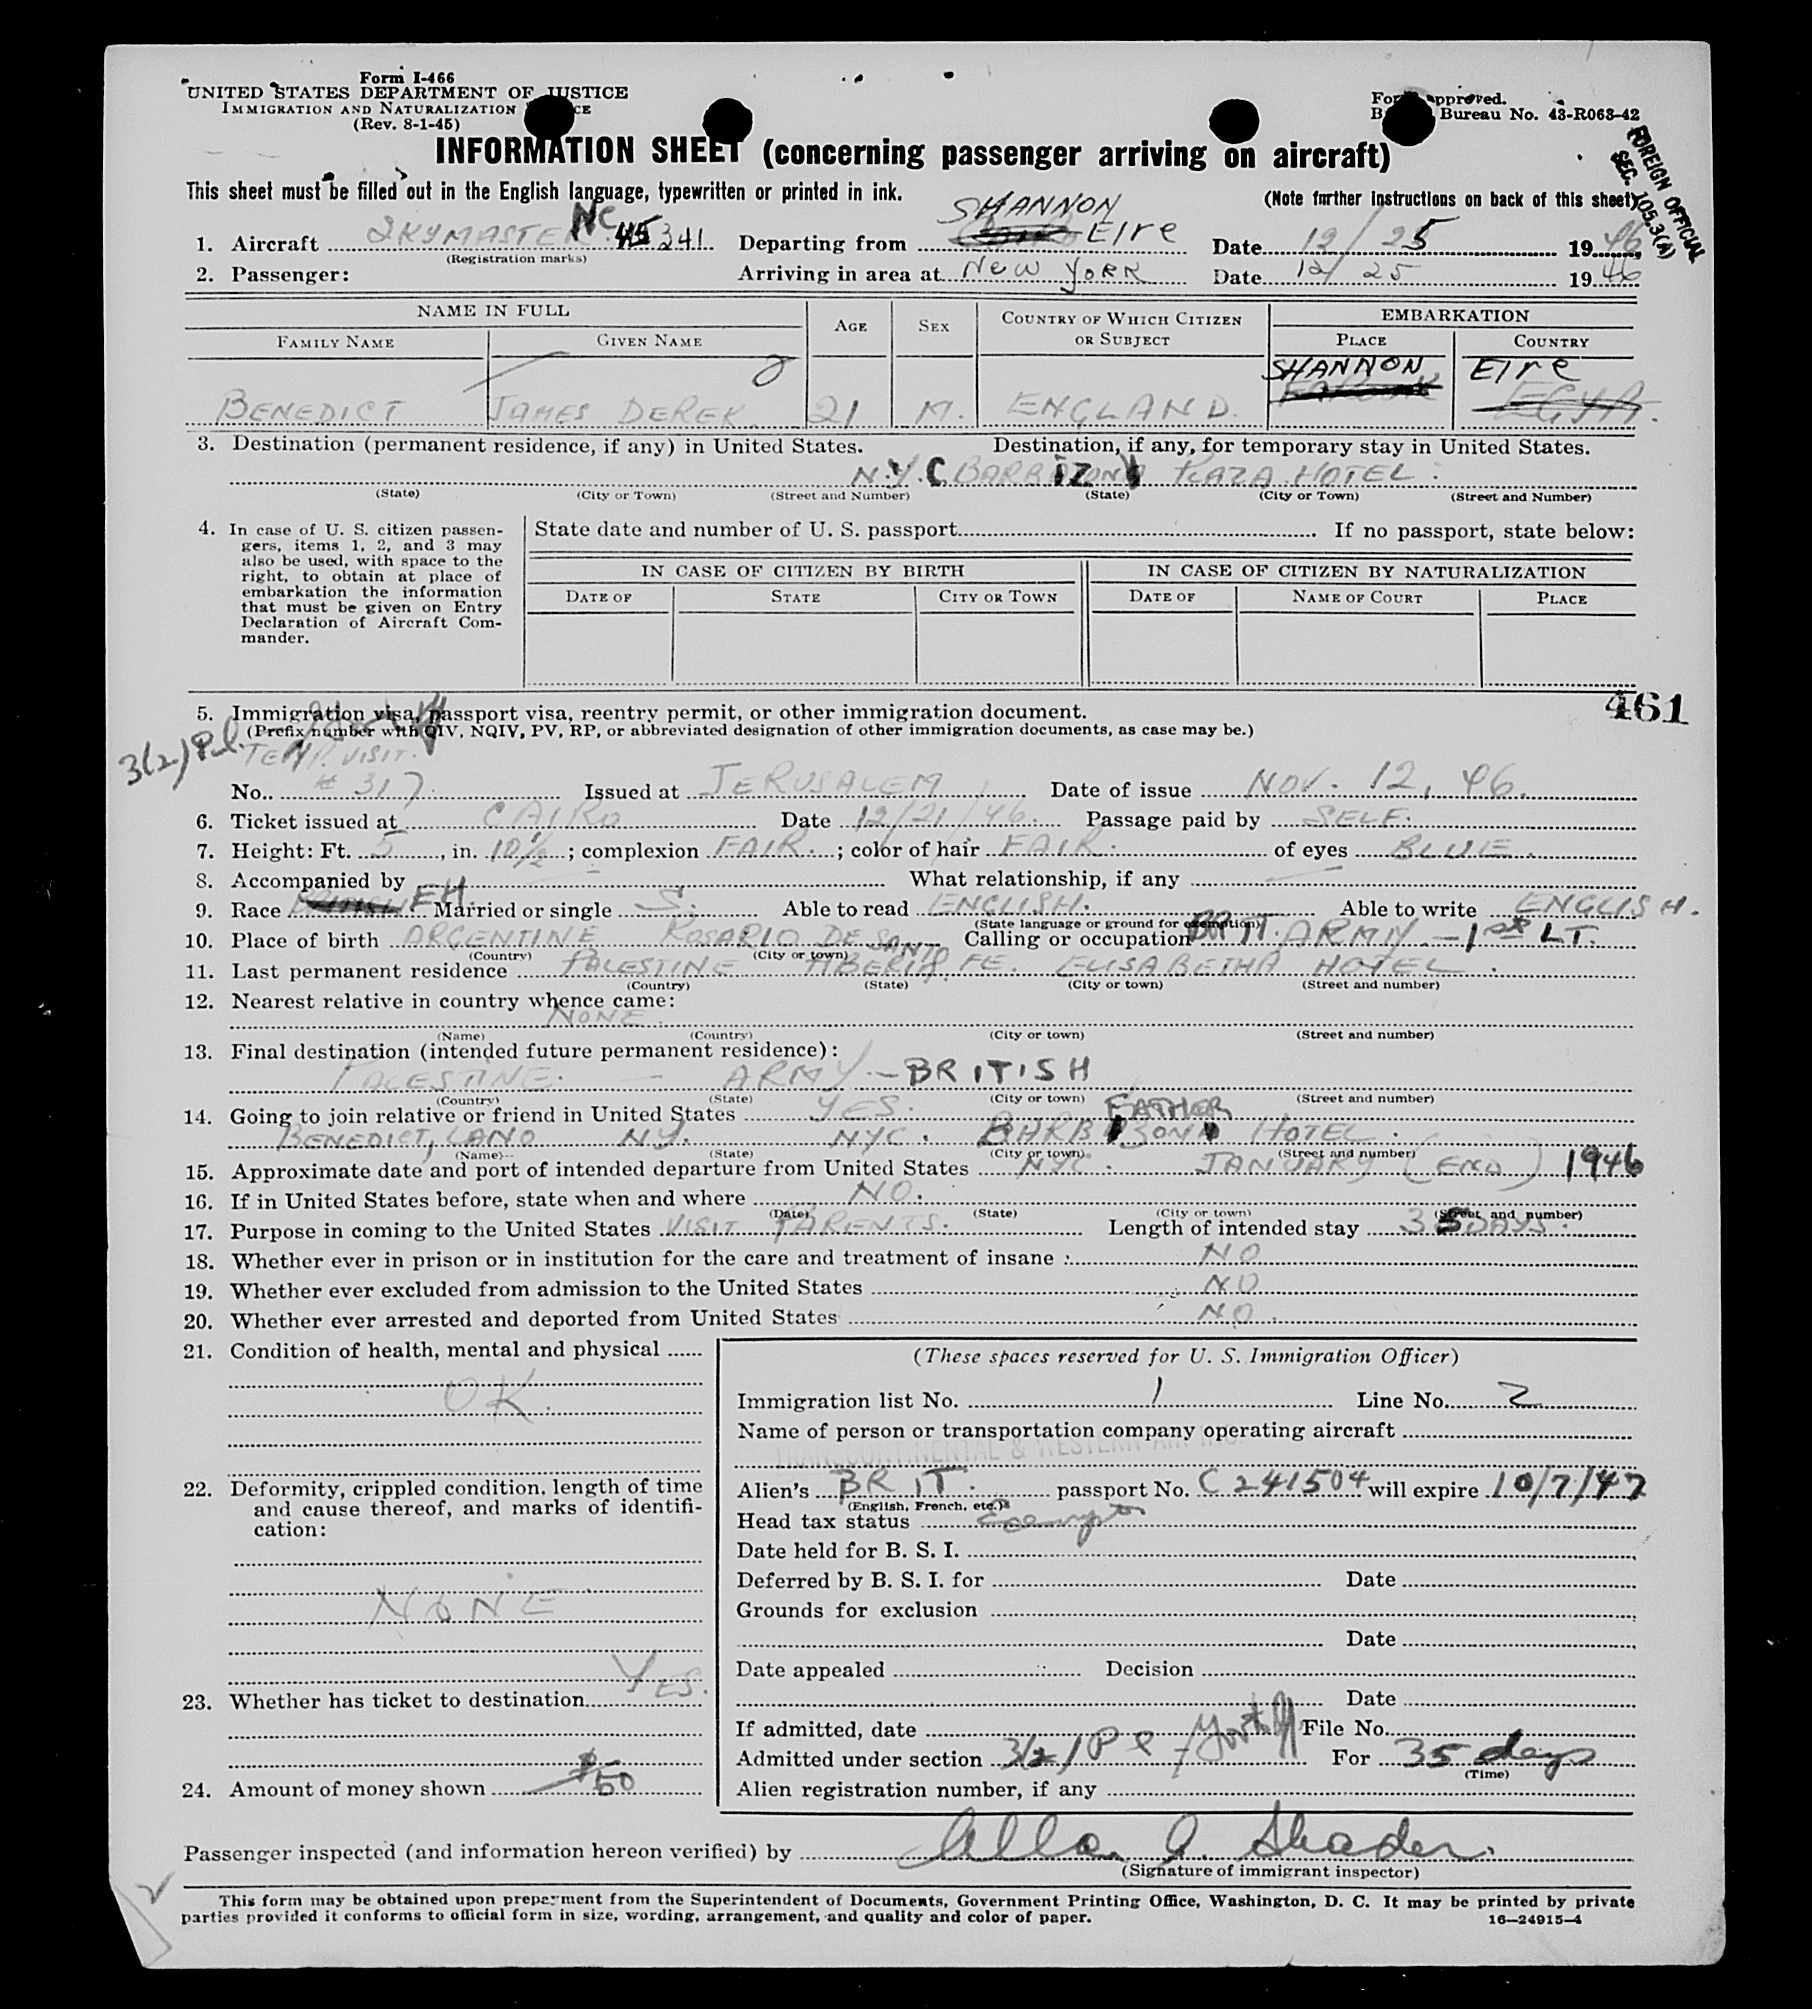 Form I-466
UNITED STATES DEPARTMENT OF JUSTICE
IMMIGRATION AND NATURALIZATION
(Rev. 8-1-45)
Bureau No. 43-R063-42
FOREIGN OFFICIAL
SEC. 105.3(A)
INFORMATION SHEET (concerning passenger arriving on aircraft)
This sheet must be filled out in the English language, typewritten or printed in ink. (Note further instructions on back of this sheet)
SHANNON
1. Aircraft SKYMASTER NC 45341 Departing from Eire Date 12/25 1946
(Registration marks)
2. Passenger: Arriving in area at New York Date 12/25 1946
NAME IN FULL AGE SEX COUNTRY OF WHICH CITIZEN OR SUBJECT EMBARKATION
FAMILY NAME GIVEN NAME PLACE COUNTRY
SHANNON Eire
BENEDICT JAMES DEREK 21 M. ENGLAND.
3. Destination (permanent residence, if any) in United States. Destination, if any, for temporary stay in United States.
N.Y.C BARBIZON PLAZA HOTEL
(State) (City or Town) (Street and Number) (State) (City or Town) (Street and Number)
4. In case of U. S. citizen passengers, items 1, 2, and 3 may also be used, with space to the right, to obtain at place of embarkation the information that must be given on Entry Declaration of Aircraft Commander.
State date and number of U. S. passport If no passport, state below:
IN CASE OF CITIZEN BY BIRTH IN CASE OF CITIZEN BY NATURALIZATION
DATE OF STATE CITY OR TOWN DATE OF NAME OF COURT PLACE
461
5. Immigration visa, passport visa, reentry permit, or other immigration document.
(Prefix number with QIV, NQIV, PV, RP, or abbreviated designation of other immigration documents, as case may be.)
3(2) Pl.
TEMP. VISIT.
No. # 317 Issued at JERUSALEM Date of issue NOV. 12, 46.
6. Ticket issued at CAIRO Date 12/21/46. Passage paid by SELF.
7. Height: Ft. 5, in. 10 1/2; complexion FAIR.; color of hair FAIR. of eyes BLUE.
8. Accompanied by — What relationship, if any —
9. Race EH. Married or single S. Able to read ENGLISH. Able to write ENGLISH.
(State language or ground for exemption)
10. Place of birth ARGENTINE ROSARIO DE SANTA FE. Calling or occupation BRIT. ARMY - 1st LT.
(Country) (City or town)
11. Last permanent residence PALESTINE ELISABETHA HOTEL.
(Country) (State) (City or town) (Street and number)
12. Nearest relative in country whence came:
NONE.
(Name) (Country) (City or town) (Street and number)
13. Final destination (intended future permanent residence):
PALESTINE. — ARMY. - BRITISH
(Country) (State) (City or town) (Street and number)
14. Going to join relative or friend in United States YES. FATHER
BENEDICT, NY. NYC. BARBIZON HOTEL.
(Name) (State) (City or town) (Street and number)
15. Approximate date and port of intended departure from United States NYC. JANUARY (END) 1946
16. If in United States before, state when and where NO.
(Date) (State) (City or town) (Street and number)
17. Purpose in coming to the United States VISIT PARENTS. Length of intended stay 35 DAYS.
18. Whether ever in prison or in institution for the care and treatment of insane: NO
19. Whether ever excluded from admission to the United States NO
20. Whether ever arrested and deported from United States NO.
21. Condition of health, mental and physical
OK.
22. Deformity, crippled condition, length of time and cause thereof, and marks of identification:
NONE
23. Whether has ticket to destination YES.
24. Amount of money shown $50
(These spaces reserved for U. S. Immigration Officer)
Immigration list No. 1 Line No. 2
Name of person or transportation company operating aircraft
TRANSCONTINENTAL & WESTERN AIR INC.
Alien's BRIT. passport No. C 241504 will expire 10/7/47
(English, French, etc.)
Head tax status Exempt
Date held for B. S. I.
Deferred by B. S. I. for Date
Grounds for exclusion
Date
Date appealed Decision
Date
If admitted, date File No.
Admitted under section 3(2) Pl For 35 days
(Time)
Alien registration number, if any
Passenger inspected (and information hereon verified) by
(Signature of immigrant inspector)
This form may be obtained upon prepayment from the Superintendent of Documents, Government Printing Office, Washington, D. C. It may be printed by private
parties provided it conforms to official form in size, wording, arrangement, and quality and color of paper.
16—24915-4